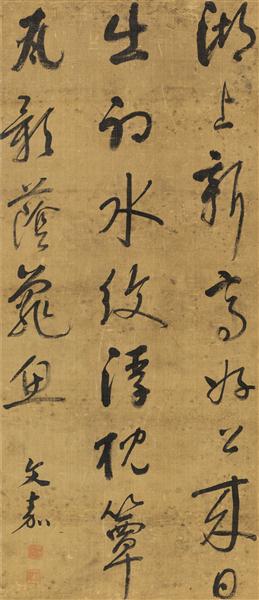 湖上新亭好公來日
出初水紋浮枕簟
瓦影蔭龜魚
文嘉